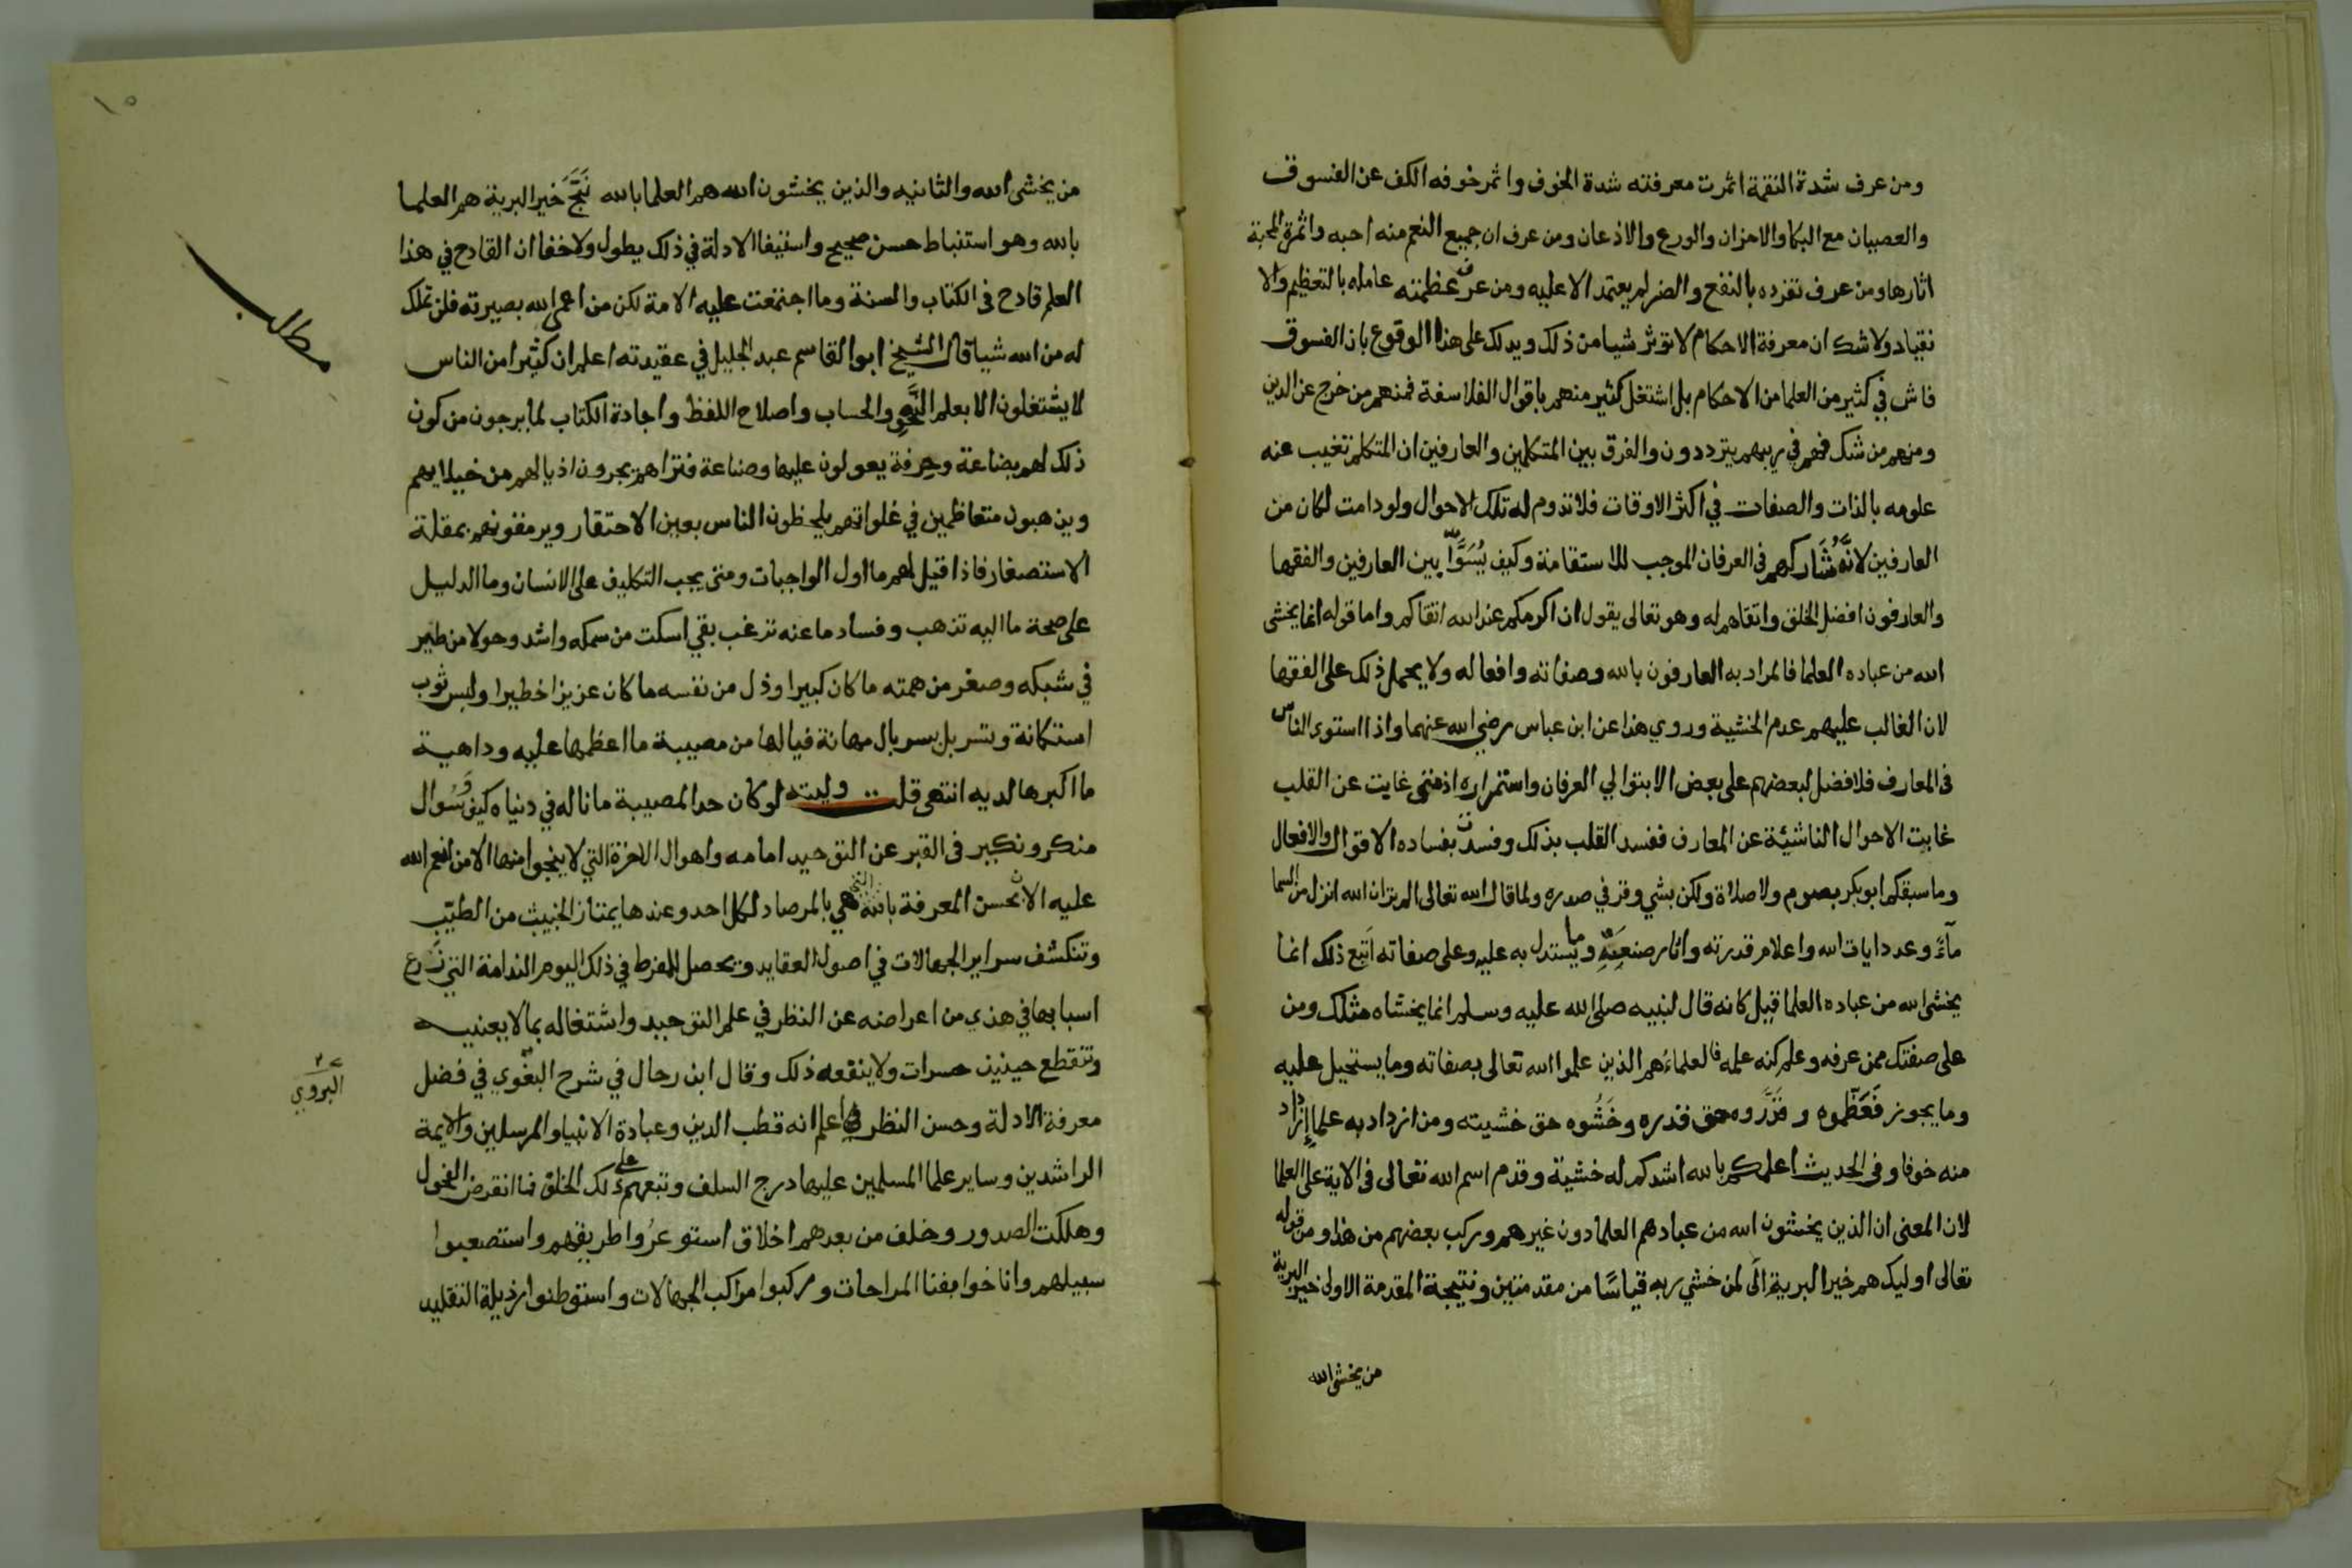 ومن عرف شدة النقمة اثمرت معرفته شدة الخوف واثمر خوفه الكف عن الفسوق
والعصيان مع البكا والاحزان والورع والاذعان ومن عرف ان جميع النعم منه احبه واثمرة المحبة
اثارها ومن عرف تفرده بالنفع والضر لم يعتمد الا عليه ومن عرف عظمته عامله بالتعظيم والا
نقياد ولا شك ان معرفة الاحكام لا تؤثر شيا من ذلك ويدلك على هذا الوقوع بان الفسوق
فاش في كثير من العلما من الاحكام بل اشتغل كثير منهم باقوال الفلاسفة فمنهم من خرج عن الدين
ومنهم من شك فهم في ريبهم يترددون والفرق بين المتكلمين والعارفين ان المتكلم تغيب عنه
علومه بالذات والصفات في اكثر الاوقات فلا تدوم له تلك الاحوال ولو دامت لكان من
العارفين لانه شاركهم في العرفان الموجب للاستقامة وكيف يسوا بين العارفين والفقها
والعارفون افضل الخلق واتقاهم له وهو تعالى يقول ان اكرمكم عند الله اتقاكم واما قوله انما يخشى
الله من عباده العلما فالمراد به العارفون بالله وصفاته وافعاله ولا يحمل ذلك على الفقها
لان الغالب عليهم عدم الخشية وروي هذا عن ابن عباس رضي الله عنهما واذا استوى الناس
في المعارف فلا فضل لبعضهم على بعض الا بتوالي العرفان واستمراره اذ متى غابت عن القلب
غابت الاحوال الناشيئة عن المعارف ففسد القلب بذلك وفسدت بفساده الاقوال والافعال
وما سبقكم ابوبكر بصوم ولا صلاة ولكن بشي وقر في صدره ولما قال الله تعالى الم تر ان الله انزل من السما
مآء وعدد ايات الله واعلام قدرته واثار صنعته وما يستدل به عليه وعلى صفاته اتبع ذلك انما
يخشى الله من عباده العلما قيل كانه قال لنبيه صلى الله عليه وسلم انما يخشاه مثلك ومن
على صفتك ممن عرفه وعلم كنه علمه فالعلماء هم الذين علموا الله تعالى بصفاته وما يستحيل عليه
وما يجوز فعظموه وقدروه حق قدره وخشوه حق خشيته ومن ازداد به علما ازداد
منه خوفا وفي الحديث اعلمكم بالله اشدكم له خشية وقدم اسم الله تعالى في الاية على العلما
لان المعنى ان الذين يخشون الله من عباد هم العلما دون غيرهم وركب بعضهم من هذا ومن قوله
تعالى اوليك هم خير البرية الى لمن خشي ربه قياسا من مقدمتين ونتيجة المقدمة الاولى خير البرية
من يخشى الله
١٥
من يخشى الله والثانيه والذين يخشون الله هم العلما بالله نتج خير البرية هم العلما
بالله وهو استنباط حسن صحيح واستيفا الادلة في ذلك يطول ولا خفا ان القادح في هذا
العلم قادح في الكتاب والسنة وما اجتمعت عليه الامة لكن من اعمى الله بصيرته فلن تملك
له من الله شيا قال الشيخ ابوا القاسم عبد الجليل في عقيدته اعلم ان كثيرا من الناس
مطلب
لا يشتغلون الا بعلم النحو والحساب واصلاح اللفظ واجادة الكتاب لما يرجون من كون
ذلك لهم بضاعة وحرفة يعولون عليها وصناعة فتراهم يجرون اذيالهم من خيلايهم
ويذهبون متعاظمين في غلواتهم يلحظون الناس بعين الاحتقار ويرمقونهم بمقلة
الاستصغار فاذا قيل لهم ما اول الواجبات ومتى يجب التكليف على الانسان وما الدليل
على صحة ما اليه تذهب وفساد ما عنه ترغب بقي اسكت من سمكه واشد وحولا من طير
في شبكه وصغر من همته ما كان كبيرا وذل من نفسه ما كان عزيزا خطيرا ولبس ثوب
استكانة وتسربل بسربال مهانة فيالها من مصيبة ما اعظمها عليه وداهية
ما اكبرها لديه انتهى قل .. وليته لو كان حد المصيبة ما ناله في دنياه كيف وسوال
منكر ونكير في القبر عن التوحيد امامه واهوال الاخرة التي لا ينجوا منها الا من انعم الله
عليه الان بحسن المعرفة بالله هي بالمرصاد لكل احد وعندها يمتاز الخبيث من الطيب
وتنكشف سراير الجهالات في اصول العقايد ويحصل للمفرط في ذلك اليوم الندامة التي
اسبابها في هذي من اعراضه عن النظر في علم التوحيد واشتغاله بما لا يعنيه
وتتقطع حينيذ حسرات ولا ينفعه ذلك وقال ابن رجال في شرح البغوي في فضل
البروي
معرفة الادلة وحسن النظر فيها اعلم انه قطب الدين وعبادة الانبيا والمرسلين والايمة
الراشدين وساير علما المسلمين عليها درج السلف وتبعهم على ذلك الخلق فما انقرض الفحول
وهلكت الصدور وخلف من بعدهم اخلاق استوعروا طريقهم واستصعبوا
سبيلهم واناخوا بفنا المراحات وركبوا مراكب الجهالات واستوطنوا رذيلة التقليد